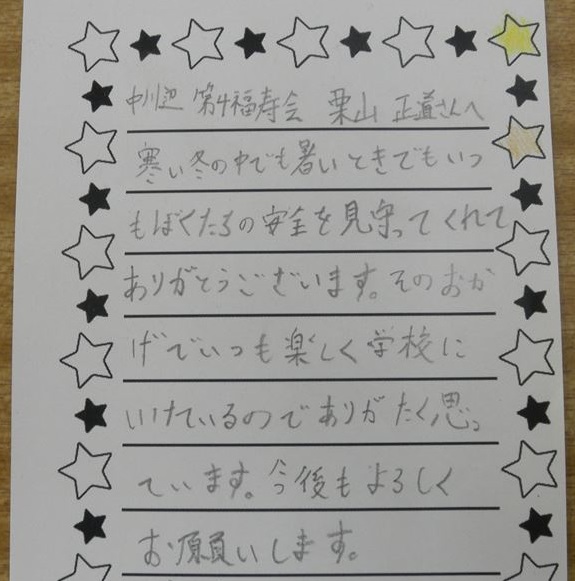 中川辺 第4福寿会 栗山 正道さんへ
寒い冬の中でも暑いときでもいつ
もぼくたちの安全を見守ってくれて
ありがとうございます。そのおか
げでいつも楽しく学校に
いけているのでありがたく思っ
ています。今後もよろしく
お願いします。